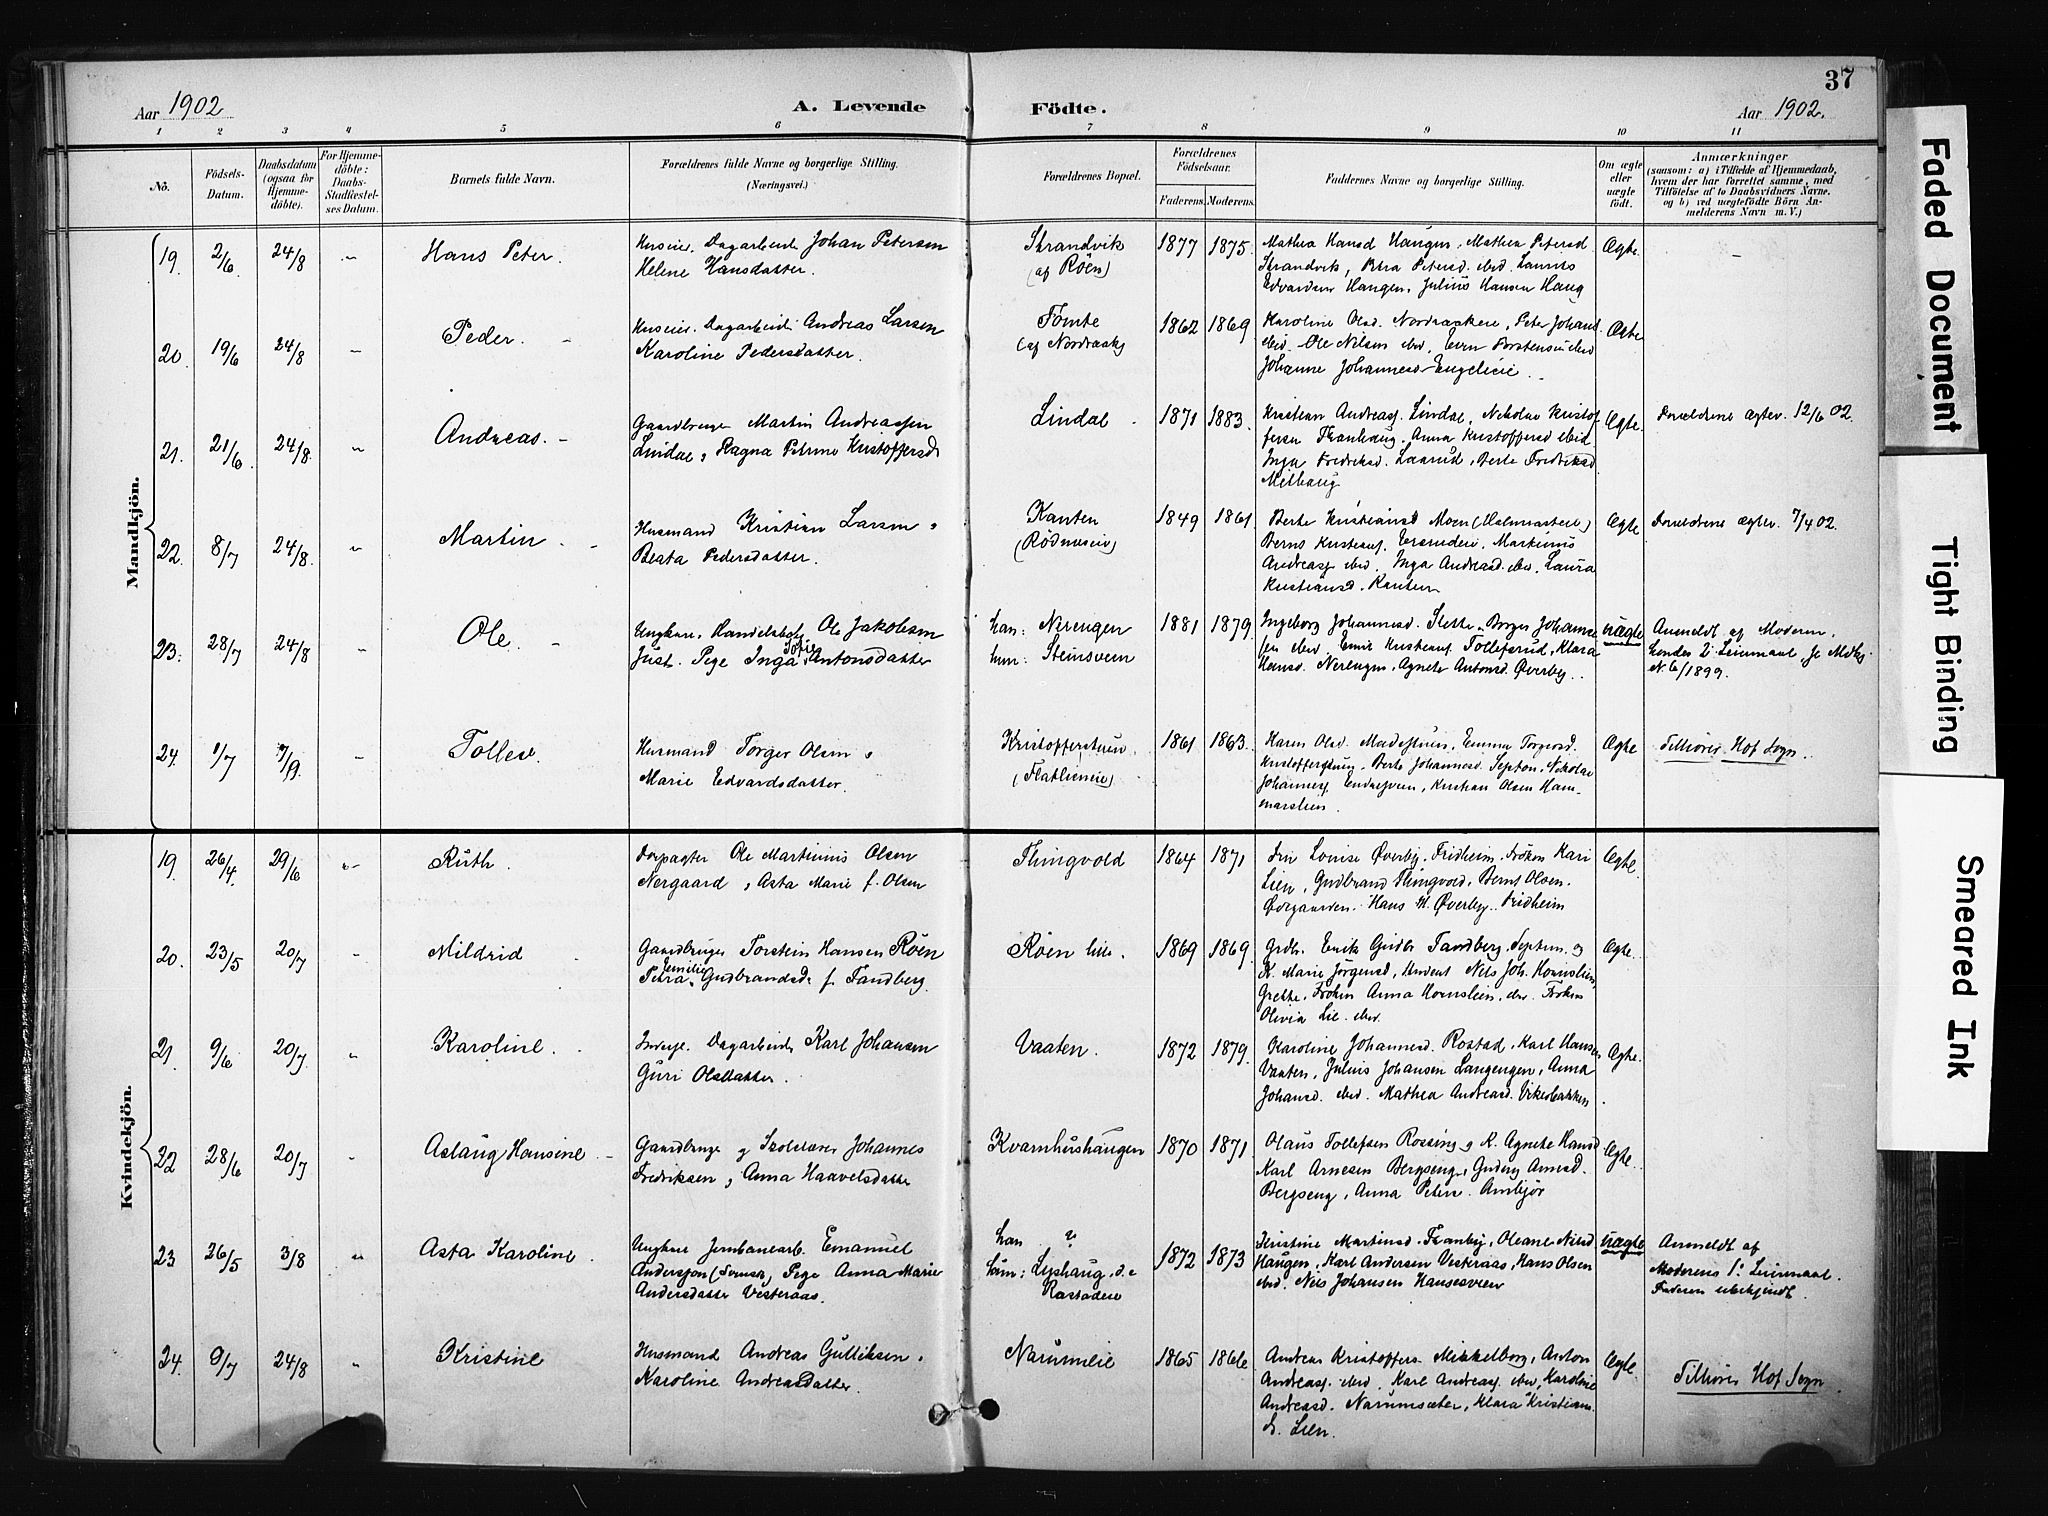 37
Aar 1902
A. Levende Födte.
Aar 1902.
1 2 3 4 5 6 7 8 9 10 11
No.
Födsels-Datum.
Daabsdatum (ogsaa for Hjemmedöbte).
For Hjemmedöbte: Daabs-Stadfæstelses Datum.
Barnets fulde Navn.
Forældrenes fulde Navne og borgerlige Stilling.
(Næringsvei.)
Forældrenes Bopæl.
Forældrenes Födselsaar.
Faderens. Moderens.
Faddernes Navne og borgerlige Stilling.
Om ægte eller uægte födt.
Anmærkninger
(saasom: a) i Tilfælde af Hjemmedaab,
hvem der har forrettet samme, med
Tilföielse af to Daabsvidners Navne,
og b) ved uægtefödte Börn Anmelderens Navn m. V.)
Mandkjön.
19. 2/6 24/8 Hans Peter.
Dagarbeid. Johan Petersen
Helene Hansdatter.
Strandvik
(af Röen)
1877 1875.
Mathea Hansd Haugen, Mathea Petersd
Strandvik, Petra Petersd. ibid. Laurits
Edvardsen Haugen, Julius Hansen Haug
Ægte.
20. 19/6 24/8 Peder.
Dagarbeid. Andreas Larsen
Karoline Pedersdatter.
Tömte
1862 1869
Karoline Olsd. Peter Johans.
ibid. Ole Nilsen ibid, Even Torstensen ibid
Johanne Johannesd Engelieie.
Ægte
21. 21/6 24/8. Andreas.
Gaardbruger Martin Andreassen
Lindal, Ragna Petrine Kristoffersd
Lindal
1871 1883.
Kristian Andreass. Lindal, Nikolai Kristoffersen
Tranhaug. Anna Kristoffersd ibid.
Inga Fredriksd. Laarud, Berte Fredriksd
Ægte.
Forældrene ægtev. 12/6 02.
22. 8/7 24/8. Martin.
Husmand Kristian Larsen,
Beata Pedersdatter.
Kanten
1849 1861
Berte Kristiansd Moen
Andreass ibid, Inga Andreasd. ibid, Laura
Kristiansd. Kanten
Ægte
Forældrene ægtev. 7/4 02.
23. 28/7 24/8 Ole.
Ungkar, Handelsbetj. Ole Jakobsen
Just. Pige Inga Sofie Antonsdatter
han: Nerengen
hun: Steinsveen
1881 1879.
Ingeborg Johannesd. Slette, Borger Johannessen
ibid. Emil Kristians. Tollefsrud, Klara
Hansd. Nerengen, Agnete Antonsd. Øverby.
uægte
Anmeldt af Moderen,
hendes 2' Leiermaal,
N. 6/1899.
24. 1/7 7/9. Tollev.
Husmand Torger Olsen,
Marie Edvardsdatter.
Kristofferstuen.
(Flatlieneie)
1861 1863.
Karen Olsd. Emma Torgersd.
Kristofferstuen, Berte Johannesd. Septon, Nikolai
Johanness. Kristian Olsen Hammarstein.
Ægte
Tilhörer Hof Sogn.
Kvindekjön.
19. 26/4. 29/6 Ruth.
Forpagter Ole Martinius Olsen
Nergaard, Asta Marie f. Olsen
Thingvold
1864 1871
Fru Louise Øverby, Fridheim. Fröken Kari
Lien, Gudbrand Thingvold, Bernt Olsen.
Hans M. Øverby. Fridheim
Ægte.
20. 23/5 20/7 Mildrid
Gaardbruger Torstein Hansen Röen
Petra Emilie Gudbrandsd. f. Tandberg.
Röen lille.
1869 1869.
Grdb. Erik Gudbr Tandberg, Septun. og
K. Marie Jörgensd, Student Nils Joh. Hornslien,
Grette, Fröken Anna Hornslein, ibid. Fröken
Olivia Lie. ibid.
Ægte.
21. 9/6 20/7. Karoline.
Dagarbeid. Karl Johansen
Guri Olsdatter.
Vaaten.
1872 1879.
Karoline Johannesd. Rostad, Karl Hansen
Vaaten, Julius Johansen Langengen, Anna
Johansd. ibid. Mathea Andreasd. Vikesbakken
Ægte.
22 28/6 20/7 Aslaug Hansine
Gaardbruger og Skolelærer Johannes
Fredriksen, Anna Haavelsdatter
Kvarnhushaugen
1870 1871
Olaus Tollefsen Rossing og K. Agnete Hansd
Karl Arnesen Bergseng, Arnesd.
Bergseng, Anna Peters. Ambjör
Ægte.
23 26/5 3/8 Asta Karoline
Ungkar Jernbanearb. Emanuel
Andersson (Svensk) Pige Anna Marie
Andersdatter Vesteraas.
han ?
hun: Lyshaug,
1872 1873
Kristine Martinsd. Tranby, Oleane Nilsd
Haugen, Karl Andersen Vesteraas, Hans Olsen
ibid. Nils Johansen Hansesveen
uægte
Anmeldt af
Moderens 1' Leiermaal.
Faderen ubekjendt.
24. 9/7 24/8 Kristine
Husmand Andreas Gulliksen,
Karoline Andreasdatter.
Narumeie
1865 1866
Andreas Kristoffers. Mikkelborg, Anton
Andreass. ibid, Karl Andreass. ibid, Karoline
Andreasd. Narumsæter, Klara Kristians
d. Lien.
Ægte.
Tilhörer Hof Sogn.
Faded Document
Tight Binding
Smeared Ink